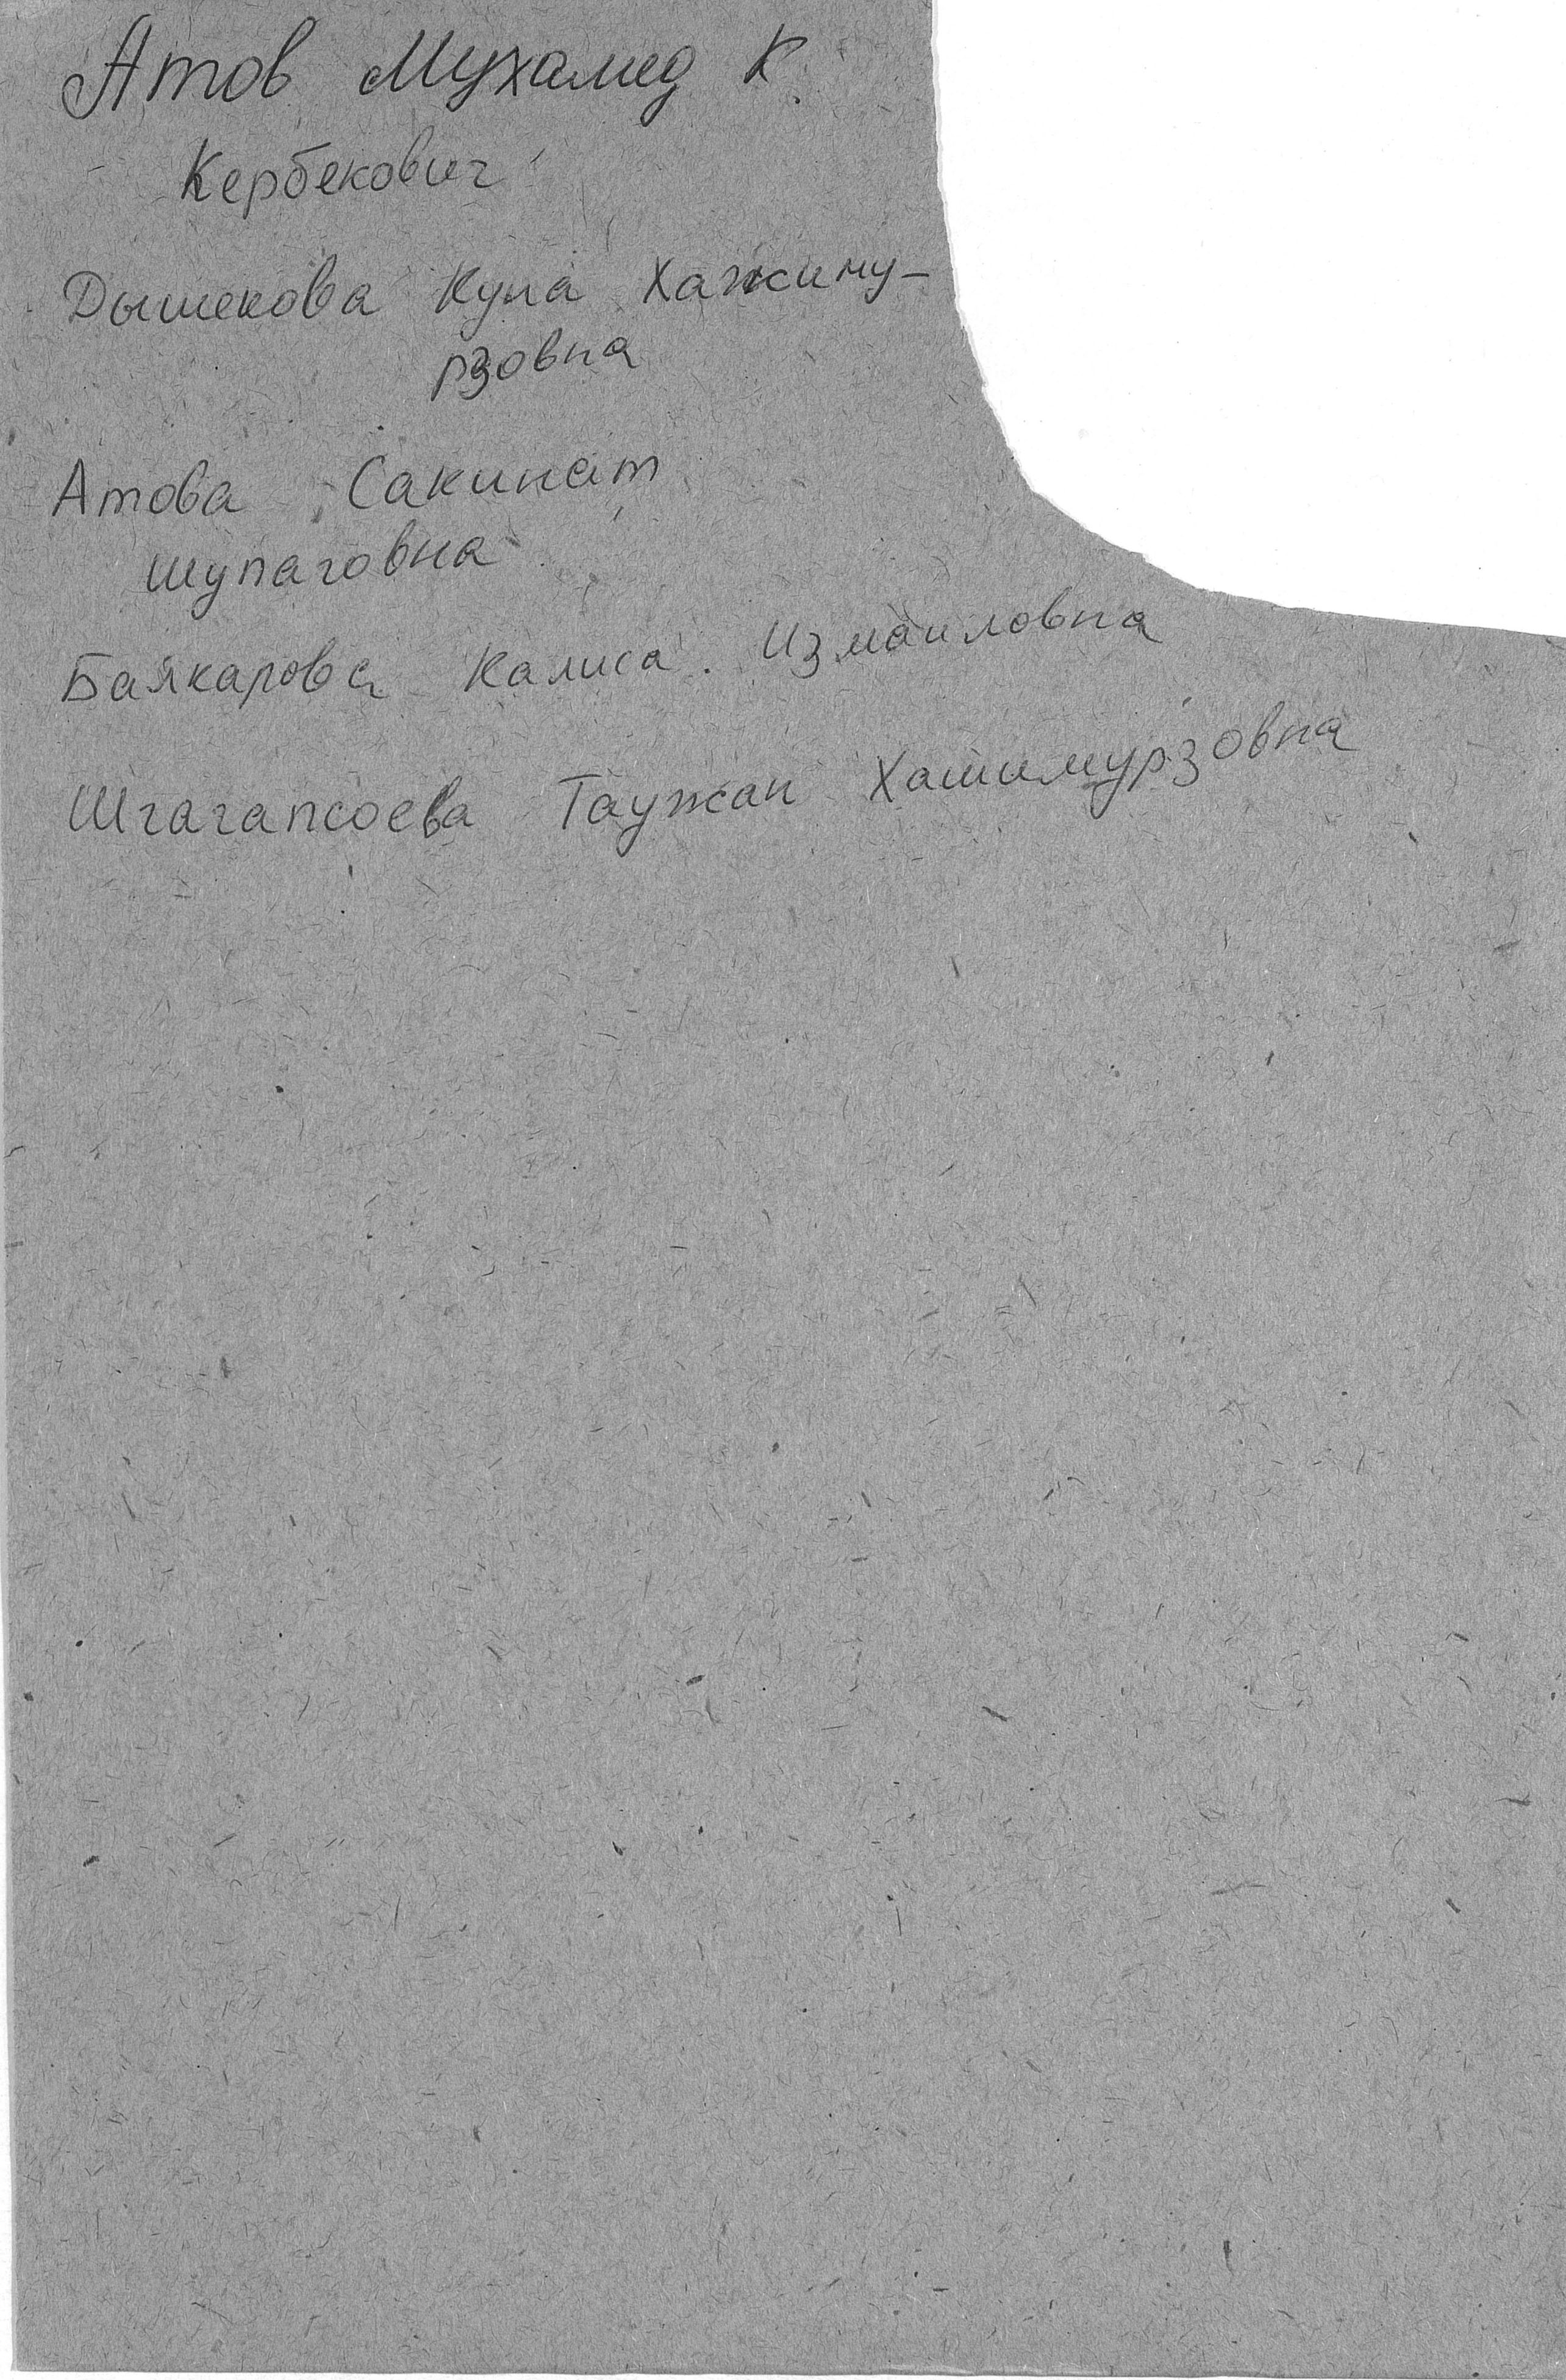 Атов Мухамед К.
Кербекович
Дышекова Куна Хажиму-
рзовна
Атова Сакинат
Шупаговна
Баякарова Калиса. Измаиловна
Шгагапсоева Таужан Хашимурзовна